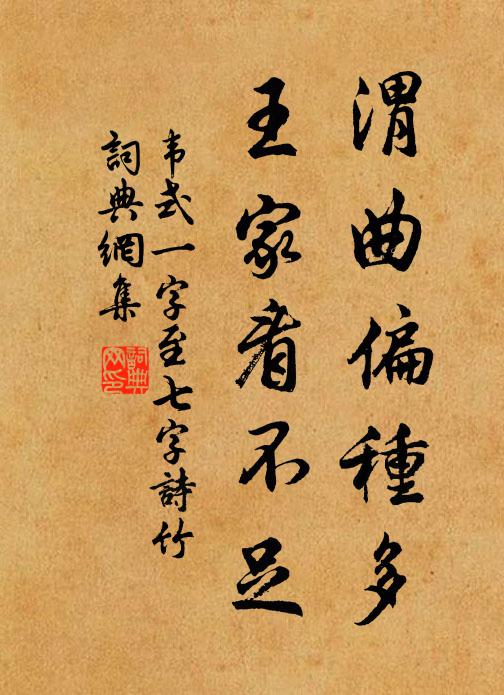 渭曲偏種多
王家看不足
韦式一字至七字詩竹
詞典網集
詞典网印